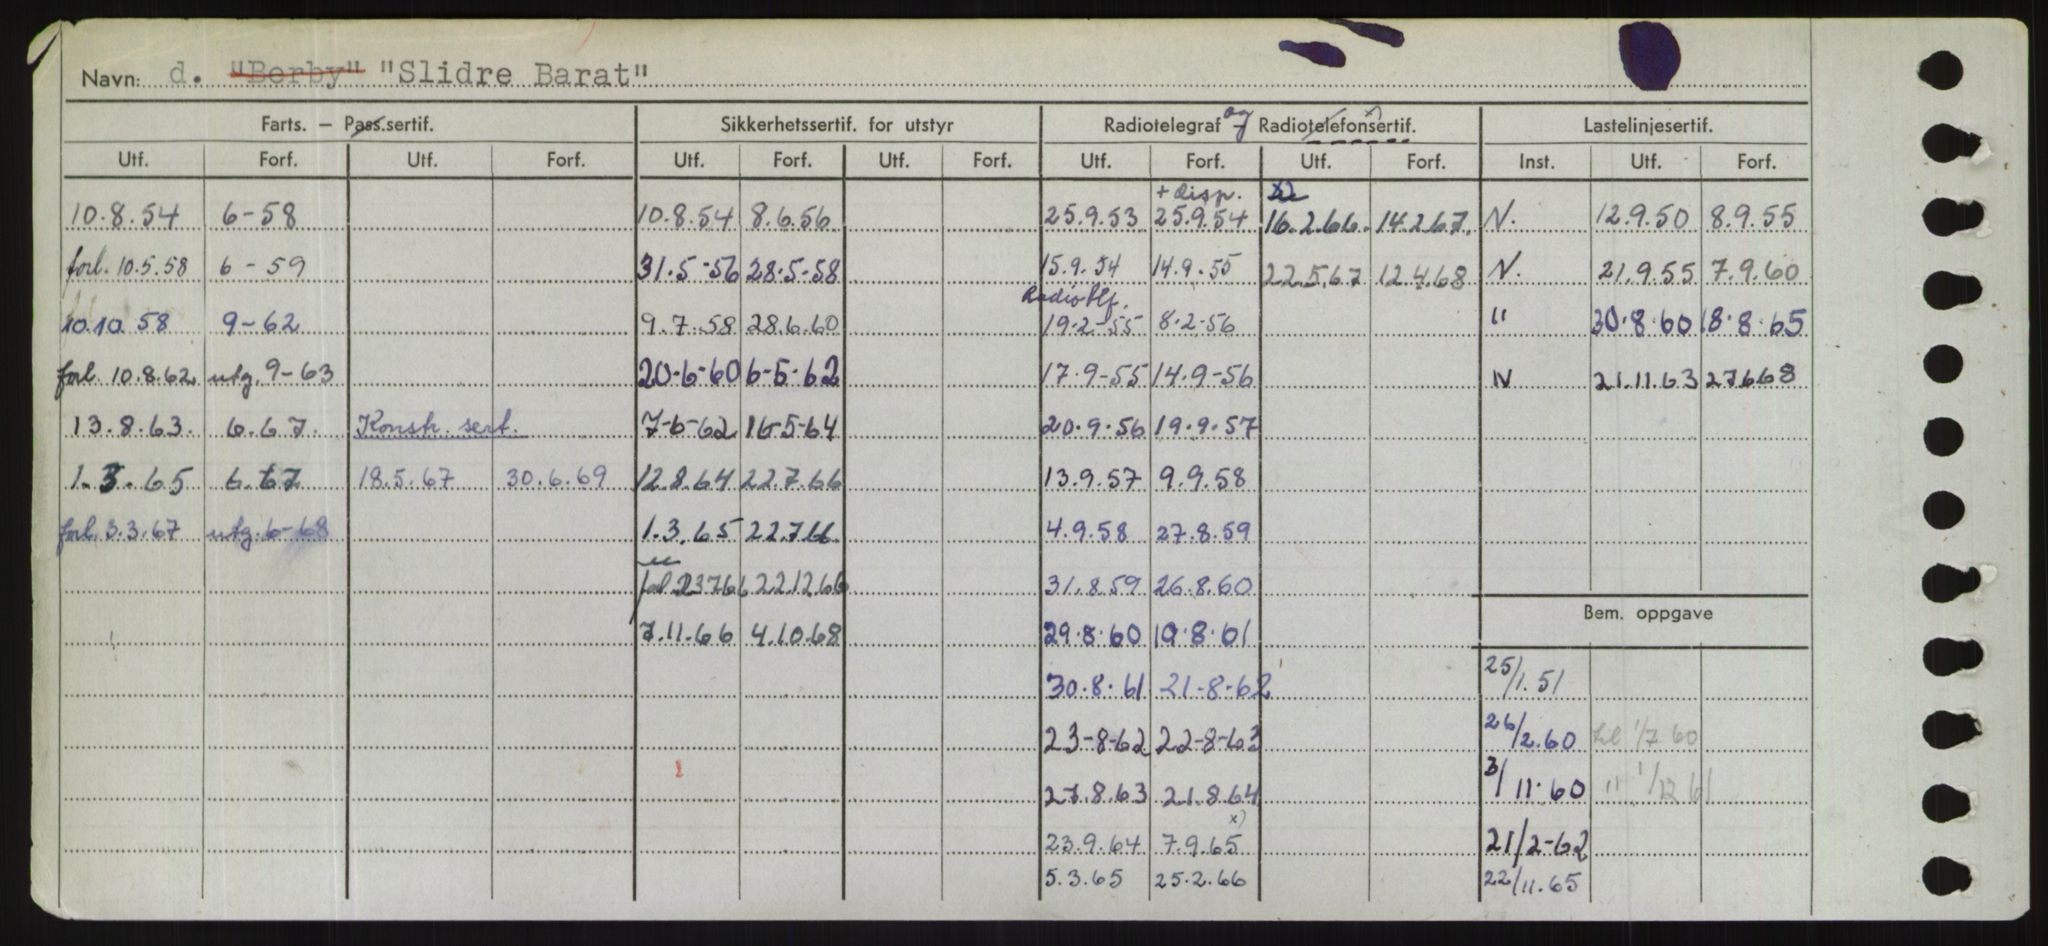 Navn: d. "Berby" "Slidre Barat"
Farts. – Pass.sertif. Sikkerhetssertif. for utstyr Radiotelegraf og Radiotelefonsertif. Lastelinjesertif.
Utf. Forf. Utf. Forf. Utf. Forf. Utf. Forf. Utf. Forf. Utf. Forf. Inst. Utf. Forf.
+ disp.
10.8.54 6-58 10.8.54 8.6.56 25.9.53 25.9.54 16.2.66. 14.2.67. N. 12.9.50 8.9.55
forl. 10.5.58 6-59 31.5-56 28.5-58 15.9.54 14.9.55 22.5.67 12.4.68 N. 21.9.55 7.9.60
Radiotlf.
10.10.58 9-62 9.7.58 28.6.60 19.2-55 8.2-56 " 30.8.60 18.8.65
forl. 10.8.62 utg. 9-63 20-6-60 6-5-62 17.9-55 14.9-56 N 21.11.63 27.6.68
13.8.63. 6.67. Konstr. sert. 7-6-62 16-5-64 20.9.56 19.9.57
1.3.65 6.67 18.5.67 30.6.69 12.8.64 22.7.66 13.9.57 9.9.58
forl. 3.3.67 utg. 6-68 1.3.65 22.7.66 4.9.58 27.8.59
forl 23766 22.12.66 31.8.59 26.8.60
Bem. oppgave
7.11.66 4.10.68 29.8.60 19.8.61
30.8.61 21-8-62 25/1.51
23-8-62 22-8-63 26/2.60 1/7 60
27.8.63 21.8.64 3/11.60 " 1/12 61
x)
23.9.64 7.9.65 21/2-62
5.3.65 25.2.66 22/11.65